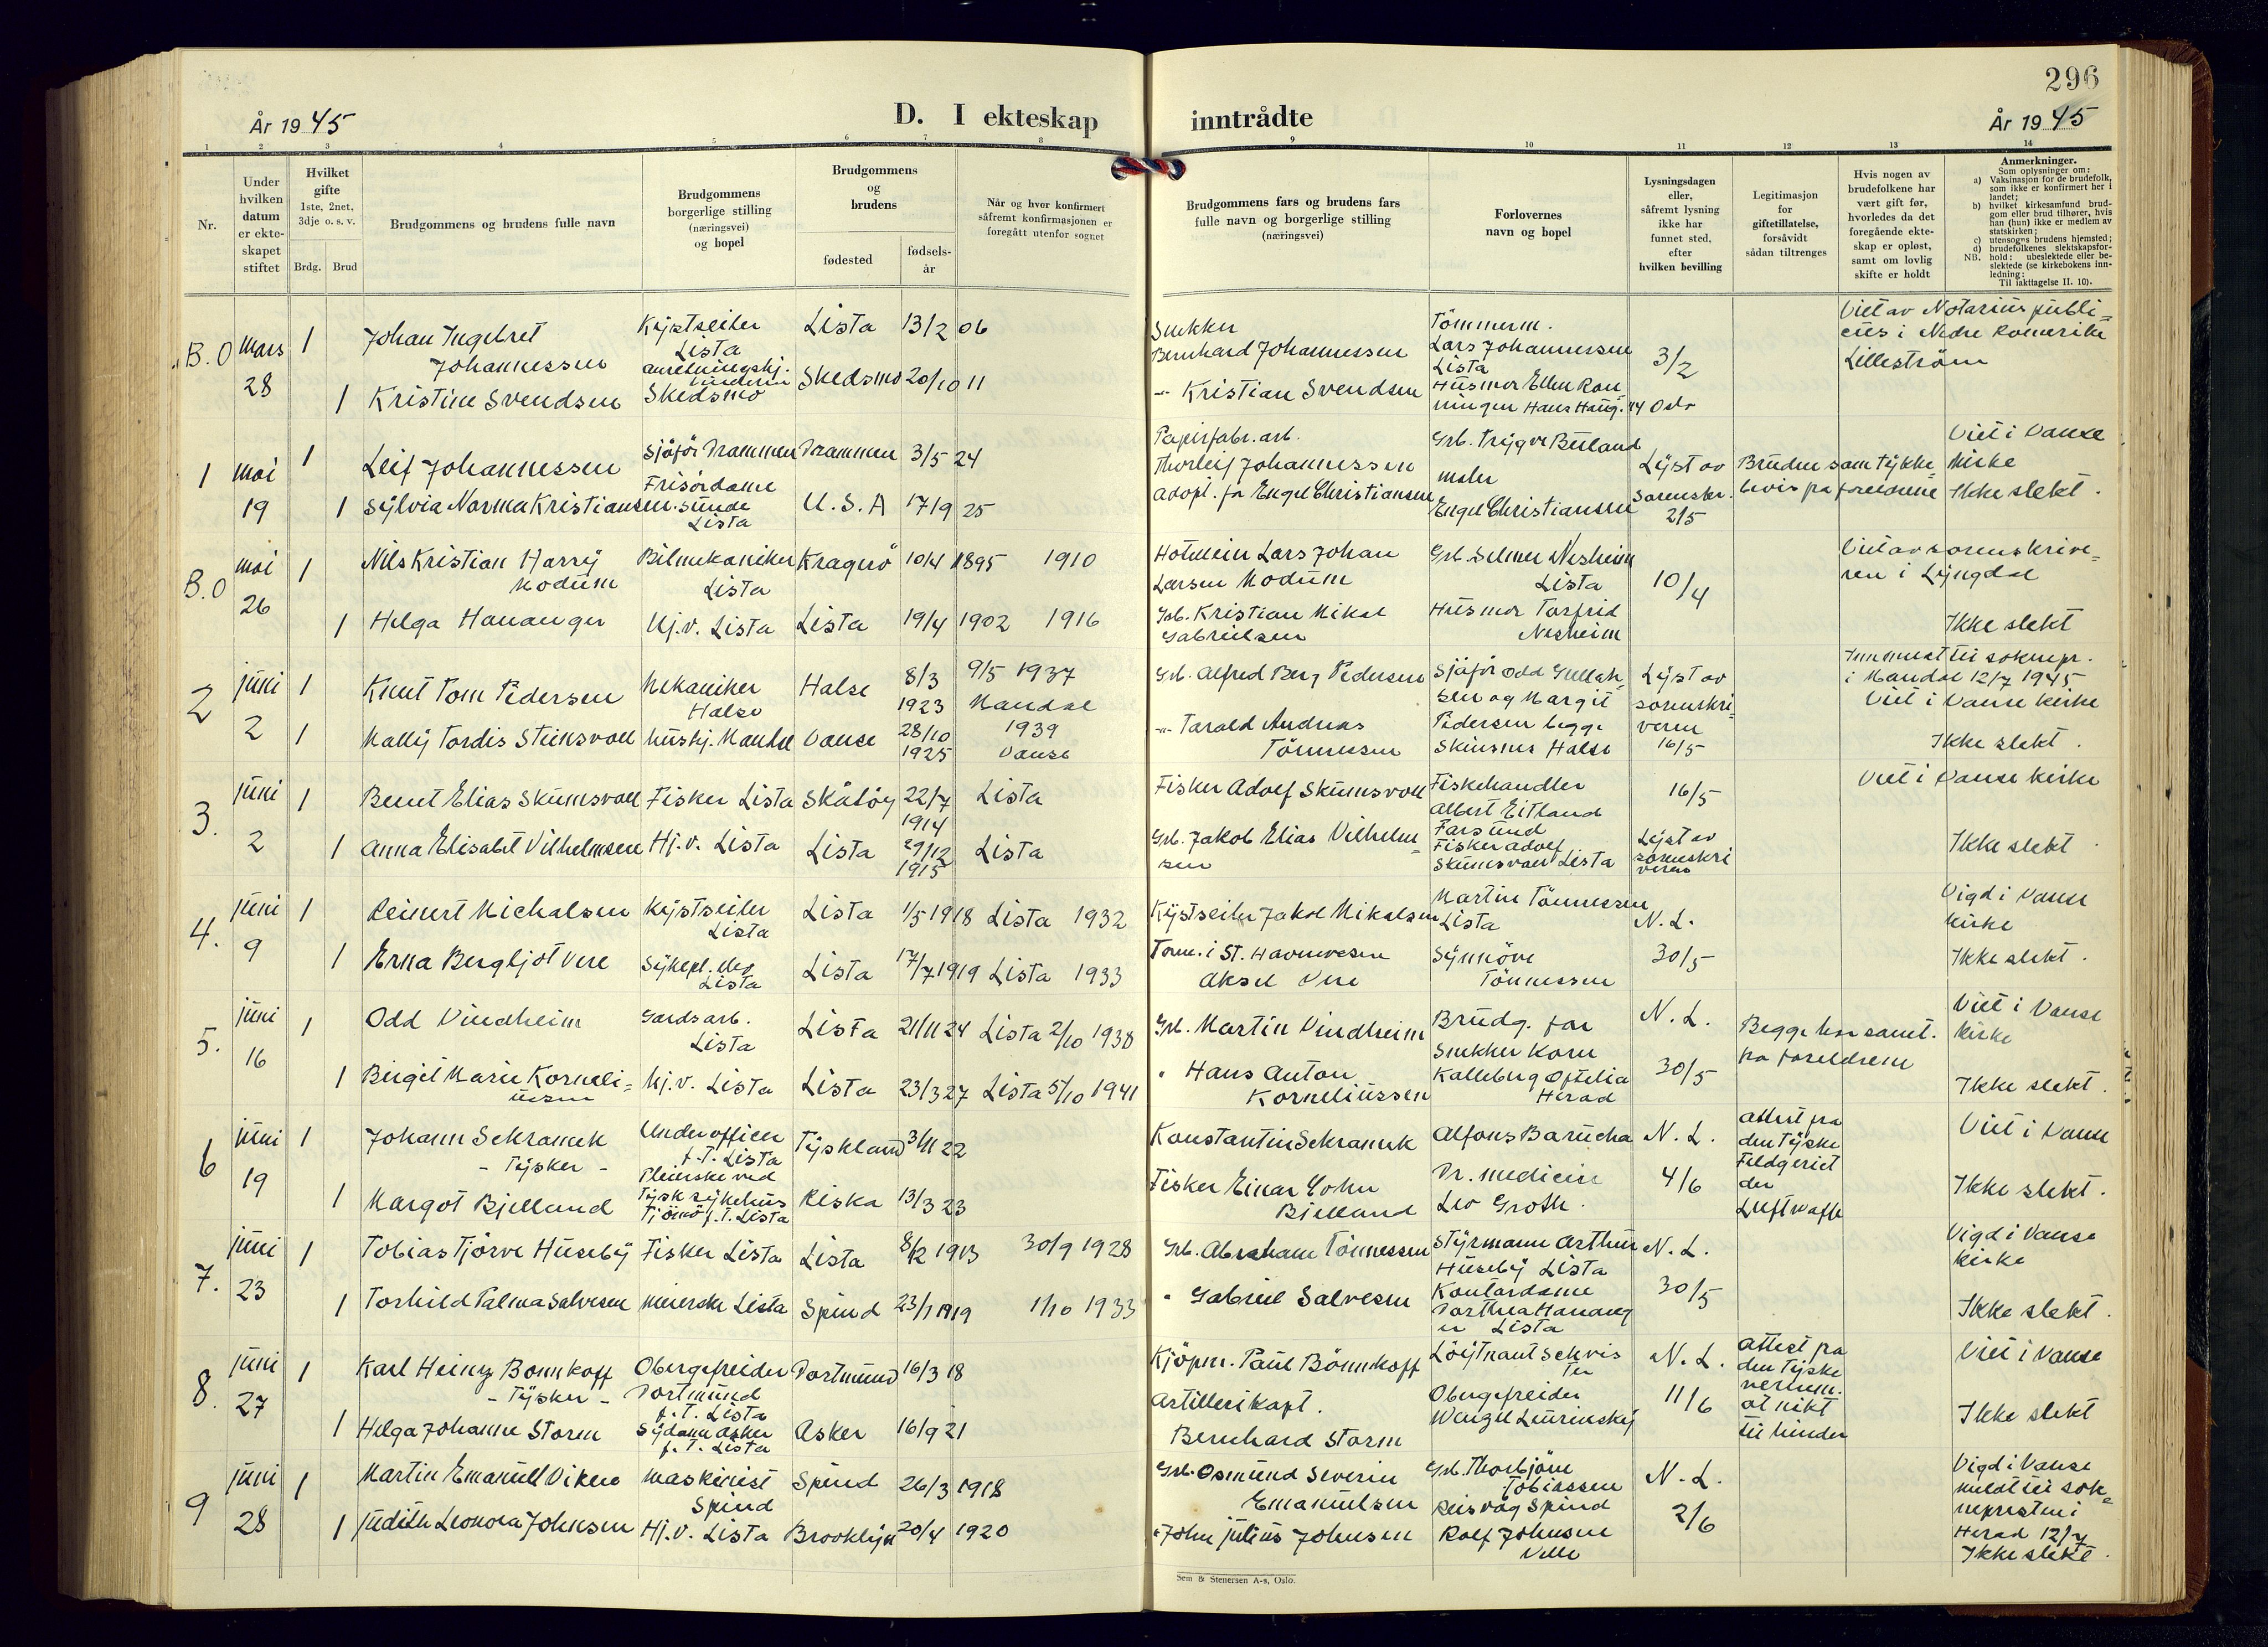 296
År 1945
D. I ekteskap inntrådte
År 1945
1 2 3 4 5 6 7 8 9 10 11 12 13 14
Nr.
Under hvilken datum er ekte-skapet stiftet
Hvilket gifte 1ste, 2net, 3dje o. s. v.
Brdg. Brud
Brudgommens og brudens fulle navn
Brudgommens borgerlige stilling (næringsvei) og bopel
Brudgommens og brudens
fødested
fødsels-år
Når og hvor konfirmert såfremt konfirmasjonen er foregått utenfor sognet
Brudgommens fars og brudens fars fulle navn og borgerlige stilling (næringsvei)
Forlovernes navn og bopel
Lysningsdagen eller, såfremt lysning ikke har funnet sted, efter hvilken bevilling
Legitimasjon for giftetillatelse, forsåvidt sådan tiltrenges
Hvis nogen av brudefolkene har vært gift før, hvorledes da det foregående ekte-skap er opløst, samt om lovlig skifte er holdt
Anmerkninger.
Som oplysninger om:
a) Vaksinasjon for de brudefolk, som ikke er konfirmert her i landet;
b) hvilket kirkesamfund brud-gom eller brud tilhører, hvis han (hun) ikke er medlem av statskirken;
c) utensogns brudens hjemsted;
d) brudefolkenes slektskapsfor-hold: ubeslektede eller be-slektede (se kirkebokens inn-ledning:
NB. Til iakttagelse II. 10).
B.O mars 28
1 Johan Ingebret Johannessen Kystseiler Lista Lista 13/2 06
Snekker Bernhard Johannessen
Tömmerm. Lars Johannessen Lista
3/2
Viet av Notarius publi-cus i Nedre Romerike Lilleström
1 Kristine Svendsen Skedsmo Skedsmo 20/10 11
-"- Kristian Svendsen
Husmor Ellen Ron-ningen Hans Haug. 44 Oslo
1 mai 19
1 Leif Johannessen Sjåför Drammen Drammen 3/5 24
Papirfabr. arb. Thorleif Johannessen
Grb. Trygve Beiland maler
Lyst av Sorenskr. 2/5
Bruden samtykke-bevis fra foreldrene
Viet i Vanse Kirke
Ikke slekt.
1 Sylvia Norma Kristiansen Frisördame Sunde Lista U.S.A 17/9 25
Adopt. far Engel Christiansen
Engel Christiansen
B.O mai 26
1 Nils Kristian Harry Modum Bilmekaniker Lista Kragerö 10/4 1895 1910
Hotelleier Lars Johan Larsen Modum
Grb. Selmer Nesheim Lista
10/4
Viet av sorenskrive-ren i Lyngdal
1 Helga Hananger Hj.v. Lista Lista 19/4 1902 1916
Grb. Kristian Mikal Gabrielsen
Husmor Torfrid Nesheim
Ikke slekt
2 juni 2
1 Knut Tom Pedersen Mekaniker Halse Halse 8/3 1923 9/5 1937 Mandal
Grb. Alfred Berg Pedersen
Sjåför Odd Gullak-sen og Margit Pedersen begge Skinsnes Halse
Lyst av sorenskri-veren 16/5
Innmeldt til soknepr. i Mandal 12/7 1945
Viet i Vanse Kirke
1 Mally Tordis Steinsvoll hushj. Mandal Vanse 28/10 1925 1939 Vanse
-"- Tarald Andreas Tönnessen
Ikke slekt.
3. juni 2
1 Bernt Elias Skumsvoll Fisker Lista Skåtöy 22/7 1914 Lista
Fisker Adolf Skumsvoll
Fiskehandler Albert Eitland Farsund
16/5
Viet i Vanse kirke
1 Anna Elisabet Vilhelmsen Hj.v. Lista Lista 29/12 1915 Lista
Grb. Jakob Elias Vilhelm-sen
Fisker Adolf Skumsvoll Lista
Lyst av sorenskri veren
Ikke slekt
4. juni 9
1 Reinert Michalsen Kystseiler Lista Lista 1/5 1918 Lista 1932
Kystseiler Jakob Mikalsen
Martin Tönnessen Lista
N.L. 30/5
Vigd i Vanse kirke
1 Erna Bergljot Vere Sykepl. elev Lista Lista 17/7 1919 Lista 1933
Törm. i St. Havnevesen Aksel Vere
Synnöve Tönnessen
Ikke slekt.
5. juni 16
1 Odd Vindheim Gårdsarb. Lista Lista 21/11 24 Lista 2/10 1938
Grb. Martin Vindheim
Brudg. far
N.L. 30/5
Begge har samt. fra foreldrene
Viet i Vanse kirke
1 Birgit Marie Korneli-ussen Hj.v. Lista Lista 23/3 27 Lista 5/10 1941
" Hans Anton Korneliussen
Snekker Korn Kalleberg Oftelia Herad
Ikke slekt.
6 juni 19
1 Johann Sekramek - Tysker - Underofficer f.T. Lista Tyskland 3/11 22
Konstantin Sekramek
Alfons Barucha
N.L. 4/6
Attest fra den Tyske Feldgericht der Luftwaffe
Viet i Vanse
1 Margot Bjelland Pleierske ved Tysk sykehus Tjömö f.T. Lista Riska 13/3 23
Fisker Einar John Bjelland
Dr. medicin Leo Groth.
Ikke slekt.
7. juni 23
1 Tobias Tjörve Huseby Fisker Lista Lista 8/12 1913 30/9 1928
Grb. Abraham Tönnessen
Styrmann Arthur Huseby Lista
N.L. 30/5
Vigd i Vanse kirke
1 Torhild Palma Salvesen Meierske Lista Spind 23/1 1919 1/10 1933
" Gabriel Salvesen
Kontordame Dorthea Hananger Lista
Ikke slekt.
8. juni 27
1 Karl Heinz Bonnkoff - Tysker - Obergefreider Dortmund f.T. Lista Dortmund 16/3 18
Kjöpm. Paul Bönnkoff
Löytnant Schvis ter
N.L. 11/6
Attest fra den Tyske verhem. at nikt til hinder
Viet i Vanse
1 Helga Johanne Storm Sydame Asker f.T. Lista Asker 16/9 21
Artillerikapt. Bernhard Storm
Obergefreider Wenzel Leurinsky
Ikke slekt
9 juni 28
1 Martin Emanuel Viken Maskinist Spind Spind 26/3 1918
Grb. Osmund Severin Emanuelsen
Grb. Thorbjörn Tobiassen Reisvåg Spind
N.L. 2/6
Vigd i Vanse meldt til sok-nepresten i Herad 12/7
Ikke slekt.
1 Judith Leonora Johnsen Hj.v. Lista Brooklyn 20/4 1920
" John Julius Johnsen
Rolf Johnsen Velle
Sem & Stenersen A-s, Oslo.